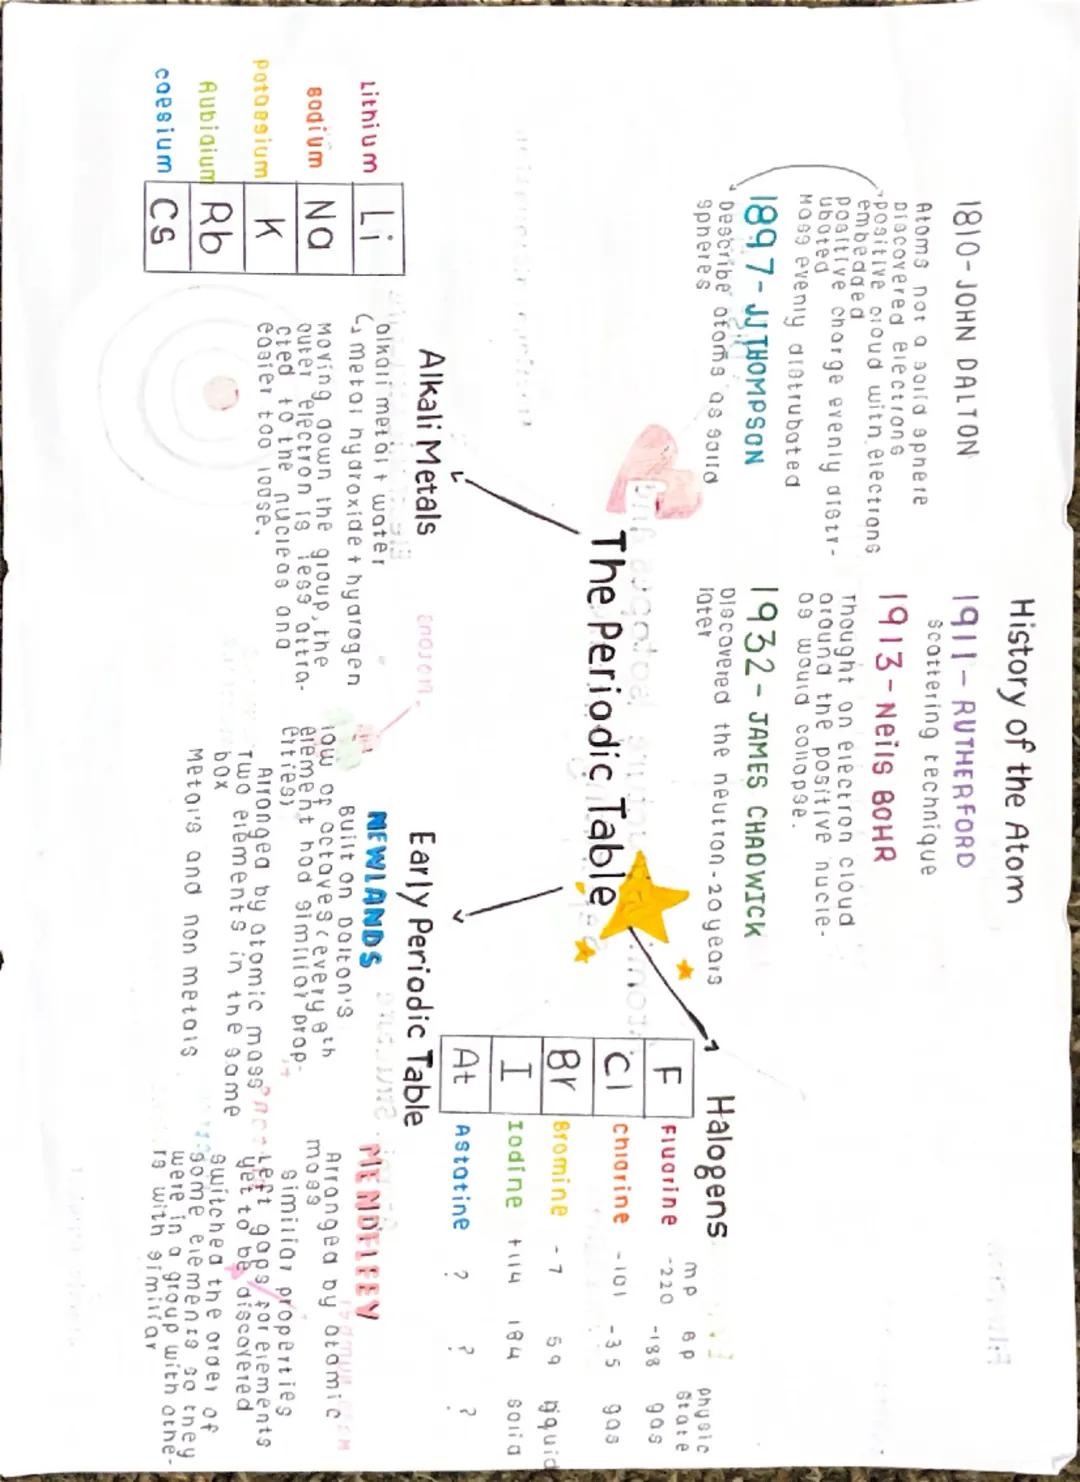 History of the Atom
1810-JOHN DALTON
Atoms not a solid sphere
Discovered electrons
positive cloud with electrons
embedded
positive charge evenly distr-
ubated
Mass evenly distrubated
1897-JJ THOMPSON
Describe atoms as solid
spheres
1911-RUTHERFORD
scattering technique
1913-Neils BOHR
Thought an electron cloud
around the positive nucle-
as would collapse.
1932-JAMES CHADWICK
Discovered the neutron-20years
later
The Periodic Table
Halogens
mp Bp physic
state
F Fluorine -220 -188 gas
Cl chlorine -101 -35 gas
Br Bromine -7 59 liquid
I Iodine +114 184 solid
At Astatine ? ? ?
Alkali Metals
Lithium Li
sodium Na
potassium K
Rubidium Rb
caesium Cs
alkali metal + water
↳ metal hydroxide + hydrogen
Moving down the group, the
outer electron is less attra-
cted to the nucleas and
easier too loose.
Early Periodic Table
NEWLANDS
Built on Dalton's
low of octaves (every 8th
element had similiar prop-
erties)
Arranged by atomic mass
Two elements in the same
box
Metal's and non metals
MENDELEEV
Arranged by atomic
mass
similiar properties
Left gaps for elements
yet to be discovered
switched the order of
some elements so they
were in a group with othe-
rs with similiar